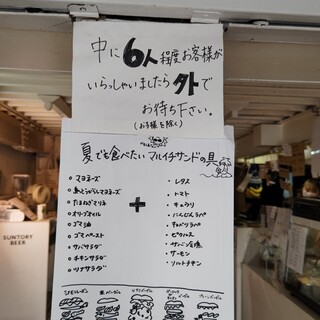 中に6人程度お客様が
いらっしゃいましたら外で
お待ち下さい。
(お子様を除く)
夏でも食べたいマルイチサンドの具
• マヨネーズ
• たまねぎマリネ
• オリーブオイル
• ゴマ油
• ゴマペースト
• サバサラダ
• チキンサラダ
• ツナサラダ
+
• レタス
• トマト
• キュウリ
• にんじんラペ
• ピクルス
• サーモン
• ソルトチキン
SUNTORY
BEER